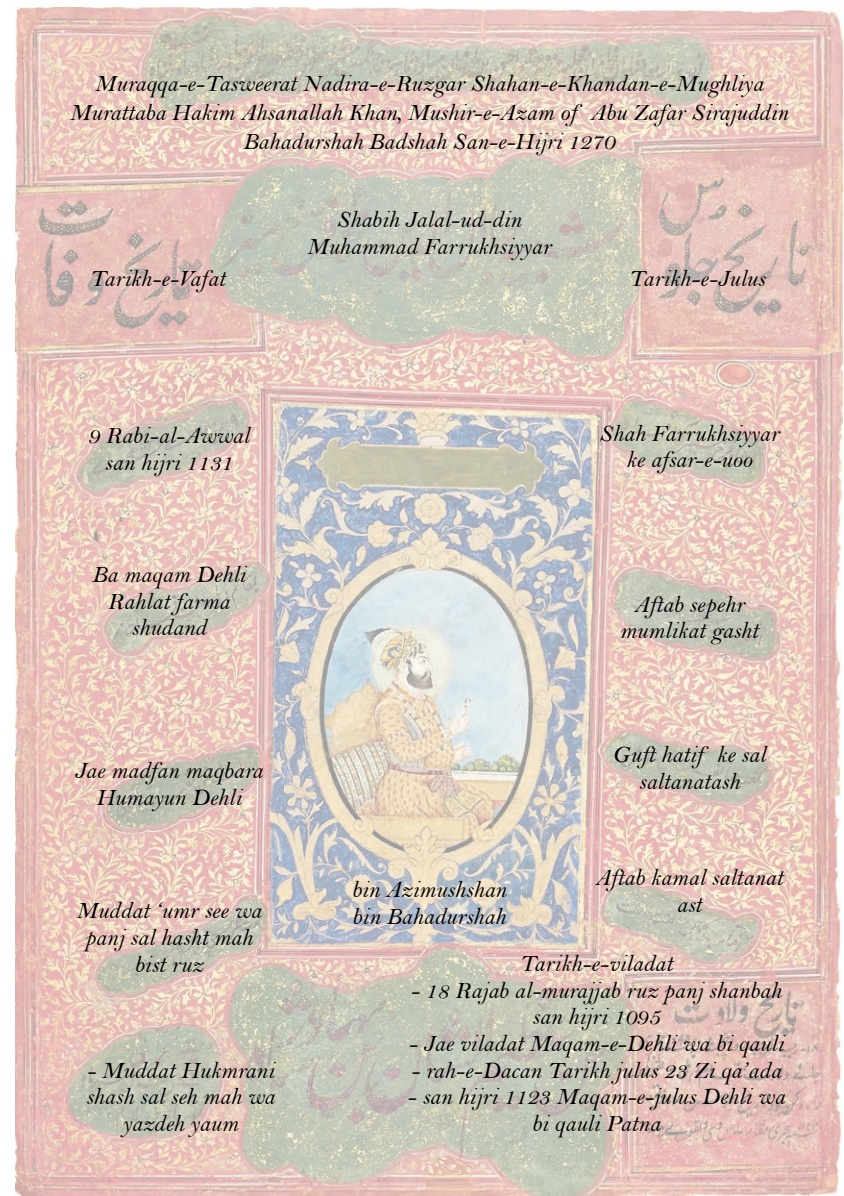 Muraqqa-e-Tasweerat Nadira-e-Ruzgar Shahan-e-Khandan-e-Mughliya
Murattaba Hakim Ahsanallah Khan, Mushir-e-Azam of Abu Zafar Sirajuddin
Bahadurshah Badshah San-e-Hijri 1270
Shabih Jalal-ud-din
Muhammad Farrukhsiyyar
Tarikh-e-Vafat
تاریخ وفات
Tarikh-e-Julus
تاریخ جلوس
9 Rabi-al-Awwal
san hijri 1131
Ba maqam Dehli
Rahlat farma
shudand
Jae madfan maqbara
Humayun Dehli
Muddat ‘umr see wa
panj sal hasht mah
bist ruz
- Muddat Hukmrani
shash sal seh mah wa
yazdeh yaum
bin Azimushshan
bin Bahadurshah
Shah Farrukhsiyyar
ke afsar-e-uoo
Aftab sepehr
mumlikat gasht
Guft hatif ke sal
saltanatash
Aftab kamal saltanat
ast
Tarikh-e-viladat
تاریخ ولادت
- 18 Rajab al-murajjab ruz panj shanbah
san hijri 1095
- Jae viladat Maqam-e-Dehli wa bi qauli
- rah-e-Dacan Tarikh julus 23 Zi qa’ada
- san hijri 1123 Maqam-e-julus Dehli wa
bi qauli Patna